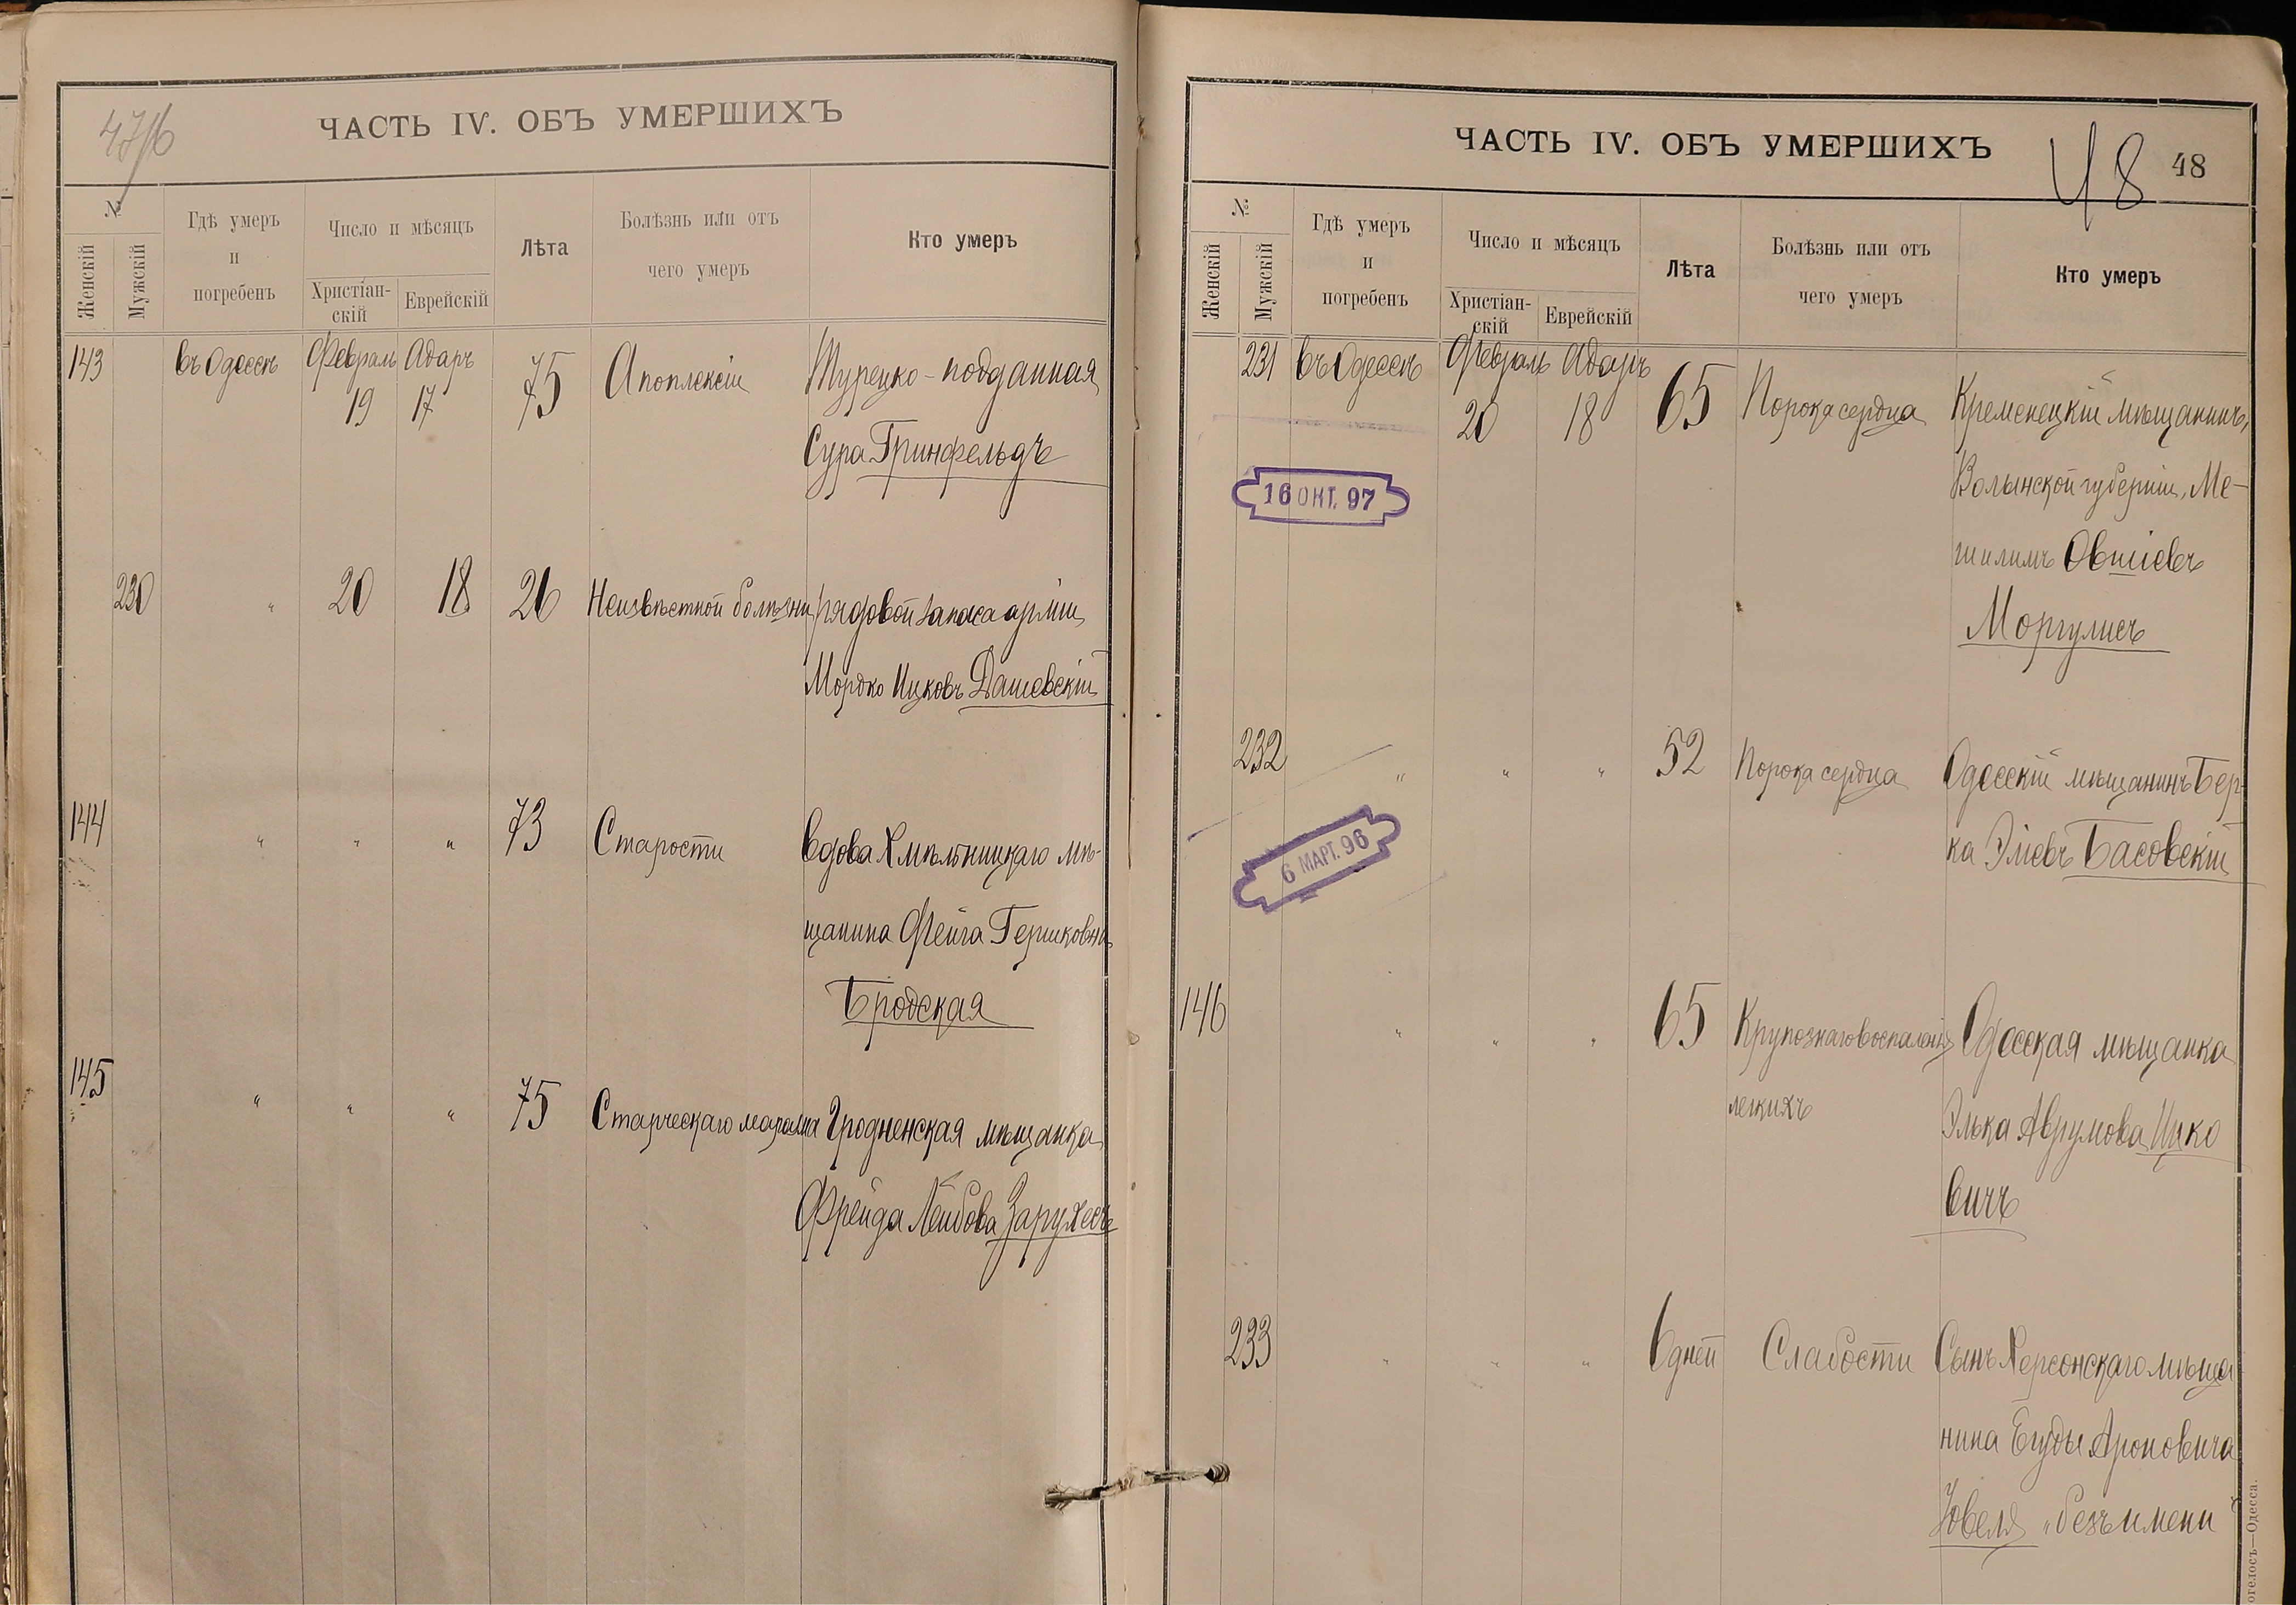 47/6
ЧАСТЬ IV. ОБЪ УМЕРШИХЪ
№
Женскій
Мужскій
Гдѣ умеръ
и
погребенъ
Число и мѣсяцъ
Христіан-
скій
Еврейскій
Лѣта
Болѣзнь или отъ
чего умеръ
Кто умеръ
143 въ Одессѣ Февраль Адаръ 75 Апоплексіи Турецко-подданная
19 17 Сура Гринфельдъ
230 " 20 18 26 Неизвѣстной болѣзни рядовой запаса арміи
Мордко Ицковъ Дашевскій
144 " " " 73 Старости вдова Хмѣльницкаго мѣ-
щанина Фейга Гершковна
Бродская
145 " " " 75 Старческаго маразма Гродненская мѣщанка
Фрейда Лейбова Зарухесъ
ЧАСТЬ IV. ОБЪ УМЕРШИХЪ
48
48
№
Женскій
Мужскій
Гдѣ умеръ
и
погребенъ
Число и мѣсяцъ
Христіан-
скій
Еврейскій
Лѣта
Болѣзнь или отъ
чего умеръ
Кто умеръ
231 въ Одессѣ Февраль Адаръ 65 Порока сердца Кременецкій мѣщанинъ,
20 18 Волынской губерніи, Ме-
16 ОКТ. 97
шилимъ Овшіевъ
Моргулисъ
232 " " " 52 Порока сердца Одесскій мѣщанинъ Бер-
6 МАРТ. 96
ка Эліевъ Басовскій
146 " " " 65 Крупознаго воспаленія Одесская мѣщанка
легкихъ Элька Аврумова Ицко
вичъ
233 " " " 6 дней Слабости Сынъ Херсонскаго мѣща-
нина Егуды Ароновича
Ювеля "безъ имени"
—Одесса.